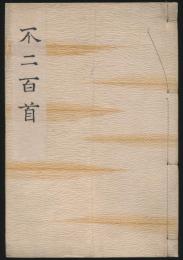 不二百首